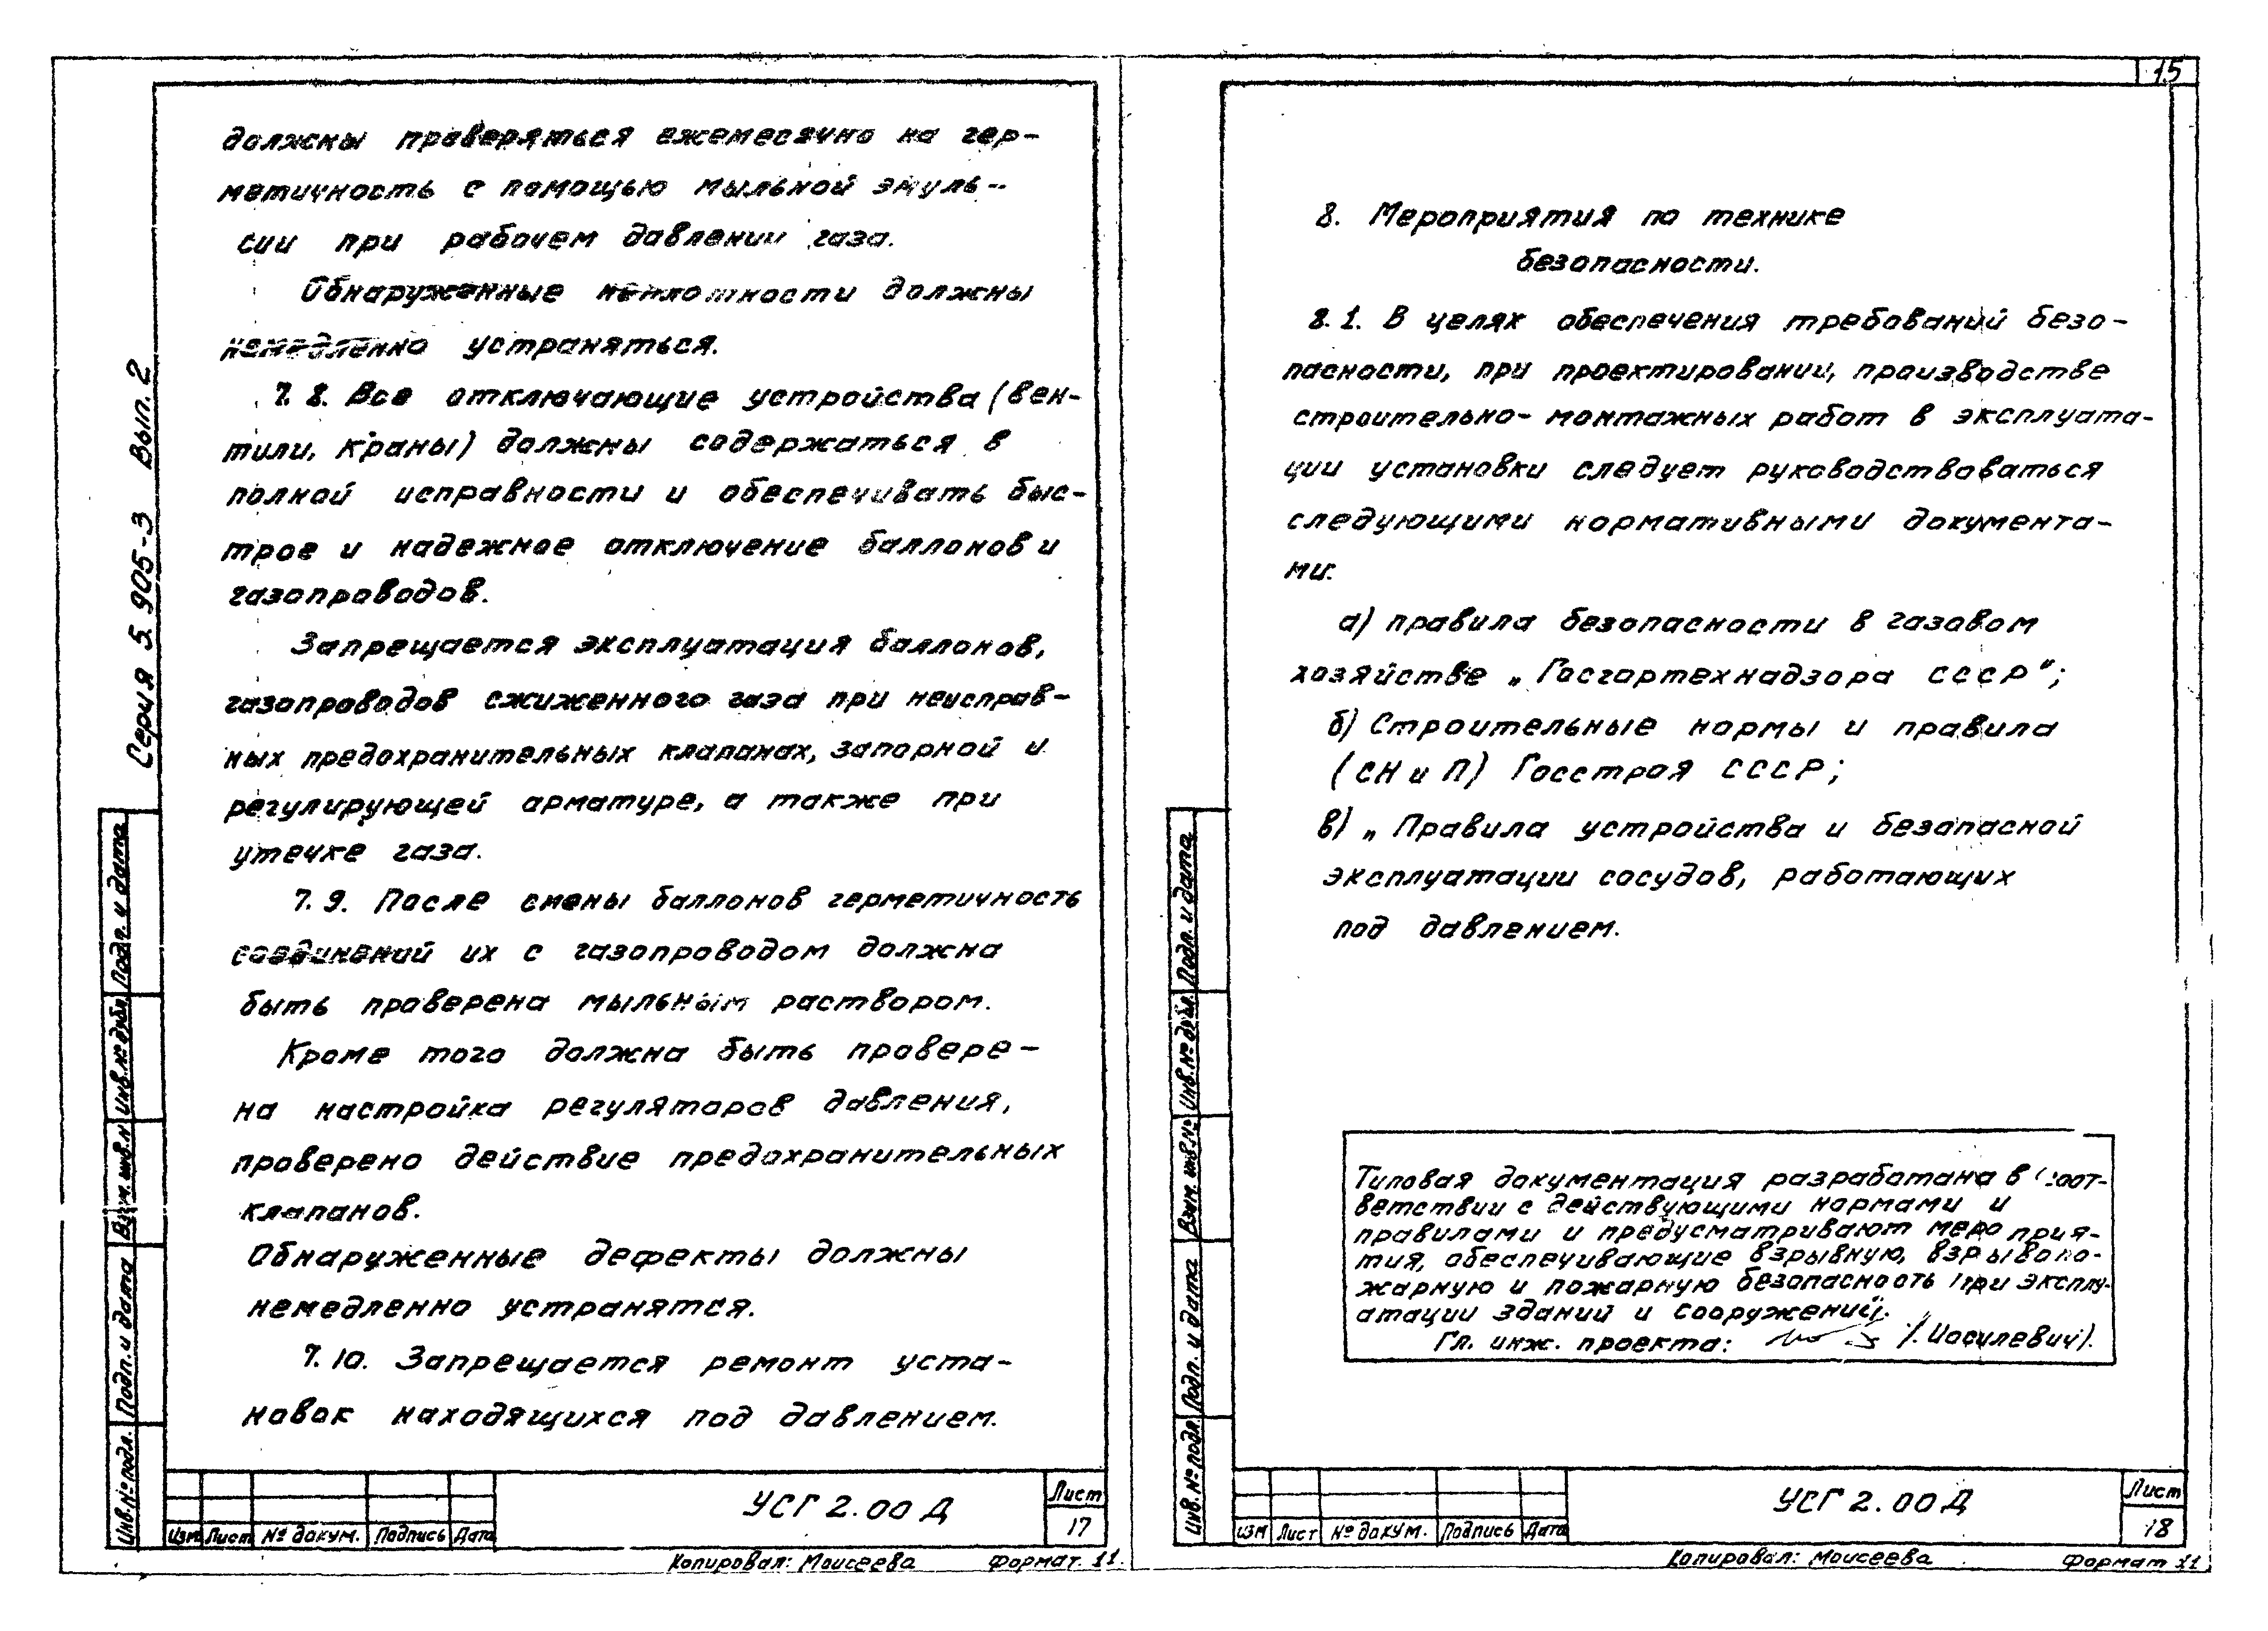 должны проверяться ежемесячно на гер-
метичность с помощью мыльной эмуль-
сии при рабочем давлении газа.
Обнаруженные неплотности должны
немедленно устраняться.
7.8. Все отключающие устройства (вен-
тили, краны) должны содержаться в
полной исправности и обеспечивать быс-
трое и надежное отключение баллонов и
газопроводов.
Запрещается эксплуатация баллонов,
газопроводов сжиженного газа при неисправ-
ных предохранительных клапанах, запорной и
регулирующей арматуре, а также при
утечке газа.
7.9. После смены баллонов герметичность
соединений их с газопроводом должна
быть проверена мыльным раствором.
Кроме того должна быть провере-
на настройка регуляторов давления,
проверено действие предохранительных
клапанов.
Обнаруженные дефекты должны
немедленно устранятся.
7.10. Запрещается ремонт уста-
новок находящихся под давлением.
Серия 5.905-3 Вып. 2
Подп. и дата
Инв.№ дубл.
Взам. инв. №
Подп. и дата
Инв. № подл.
Изм Лист № докум. Подпись Дата
УСГ 2.00 Д
Лист
17
Копировал: Моисеева Формат 11
15
8. Мероприятия по технике
безопасности.
8.1. В целях обеспечения требований безо-
пасности, при проектировании, производстве
строительно-монтажных работ в эксплуата-
ции установки следует руководствоваться
следующими нормативными документа-
ми:
а) правила безопасности в газовом
хозяйстве „Госгортехнадзора СССР";
б) Строительные нормы и правила
(СН и П) Госстроя СССР;
в) „Правила устройства и безопасной
эксплуатации сосудов, работающих
под давлением.
Типовая документация разработана в соот-
ветствии с действующими нормами и
правилами и предусматривают меро прия-
тия, обеспечивающие взрывную, взрывопо-
жарную и пожарную безопасность при эксплу-
атации зданий и сооружений.
Гл. инж. проекта: /.Иосилевич).
Подп. и дата
Инв. № дубл.
Взам. инв №
Подп. и дата
Инв. № подл.
изм Лист № докум. Подпись Дата
УСГ 2.00 Д
Лист
18
Копировал: Моисеева Формат 11